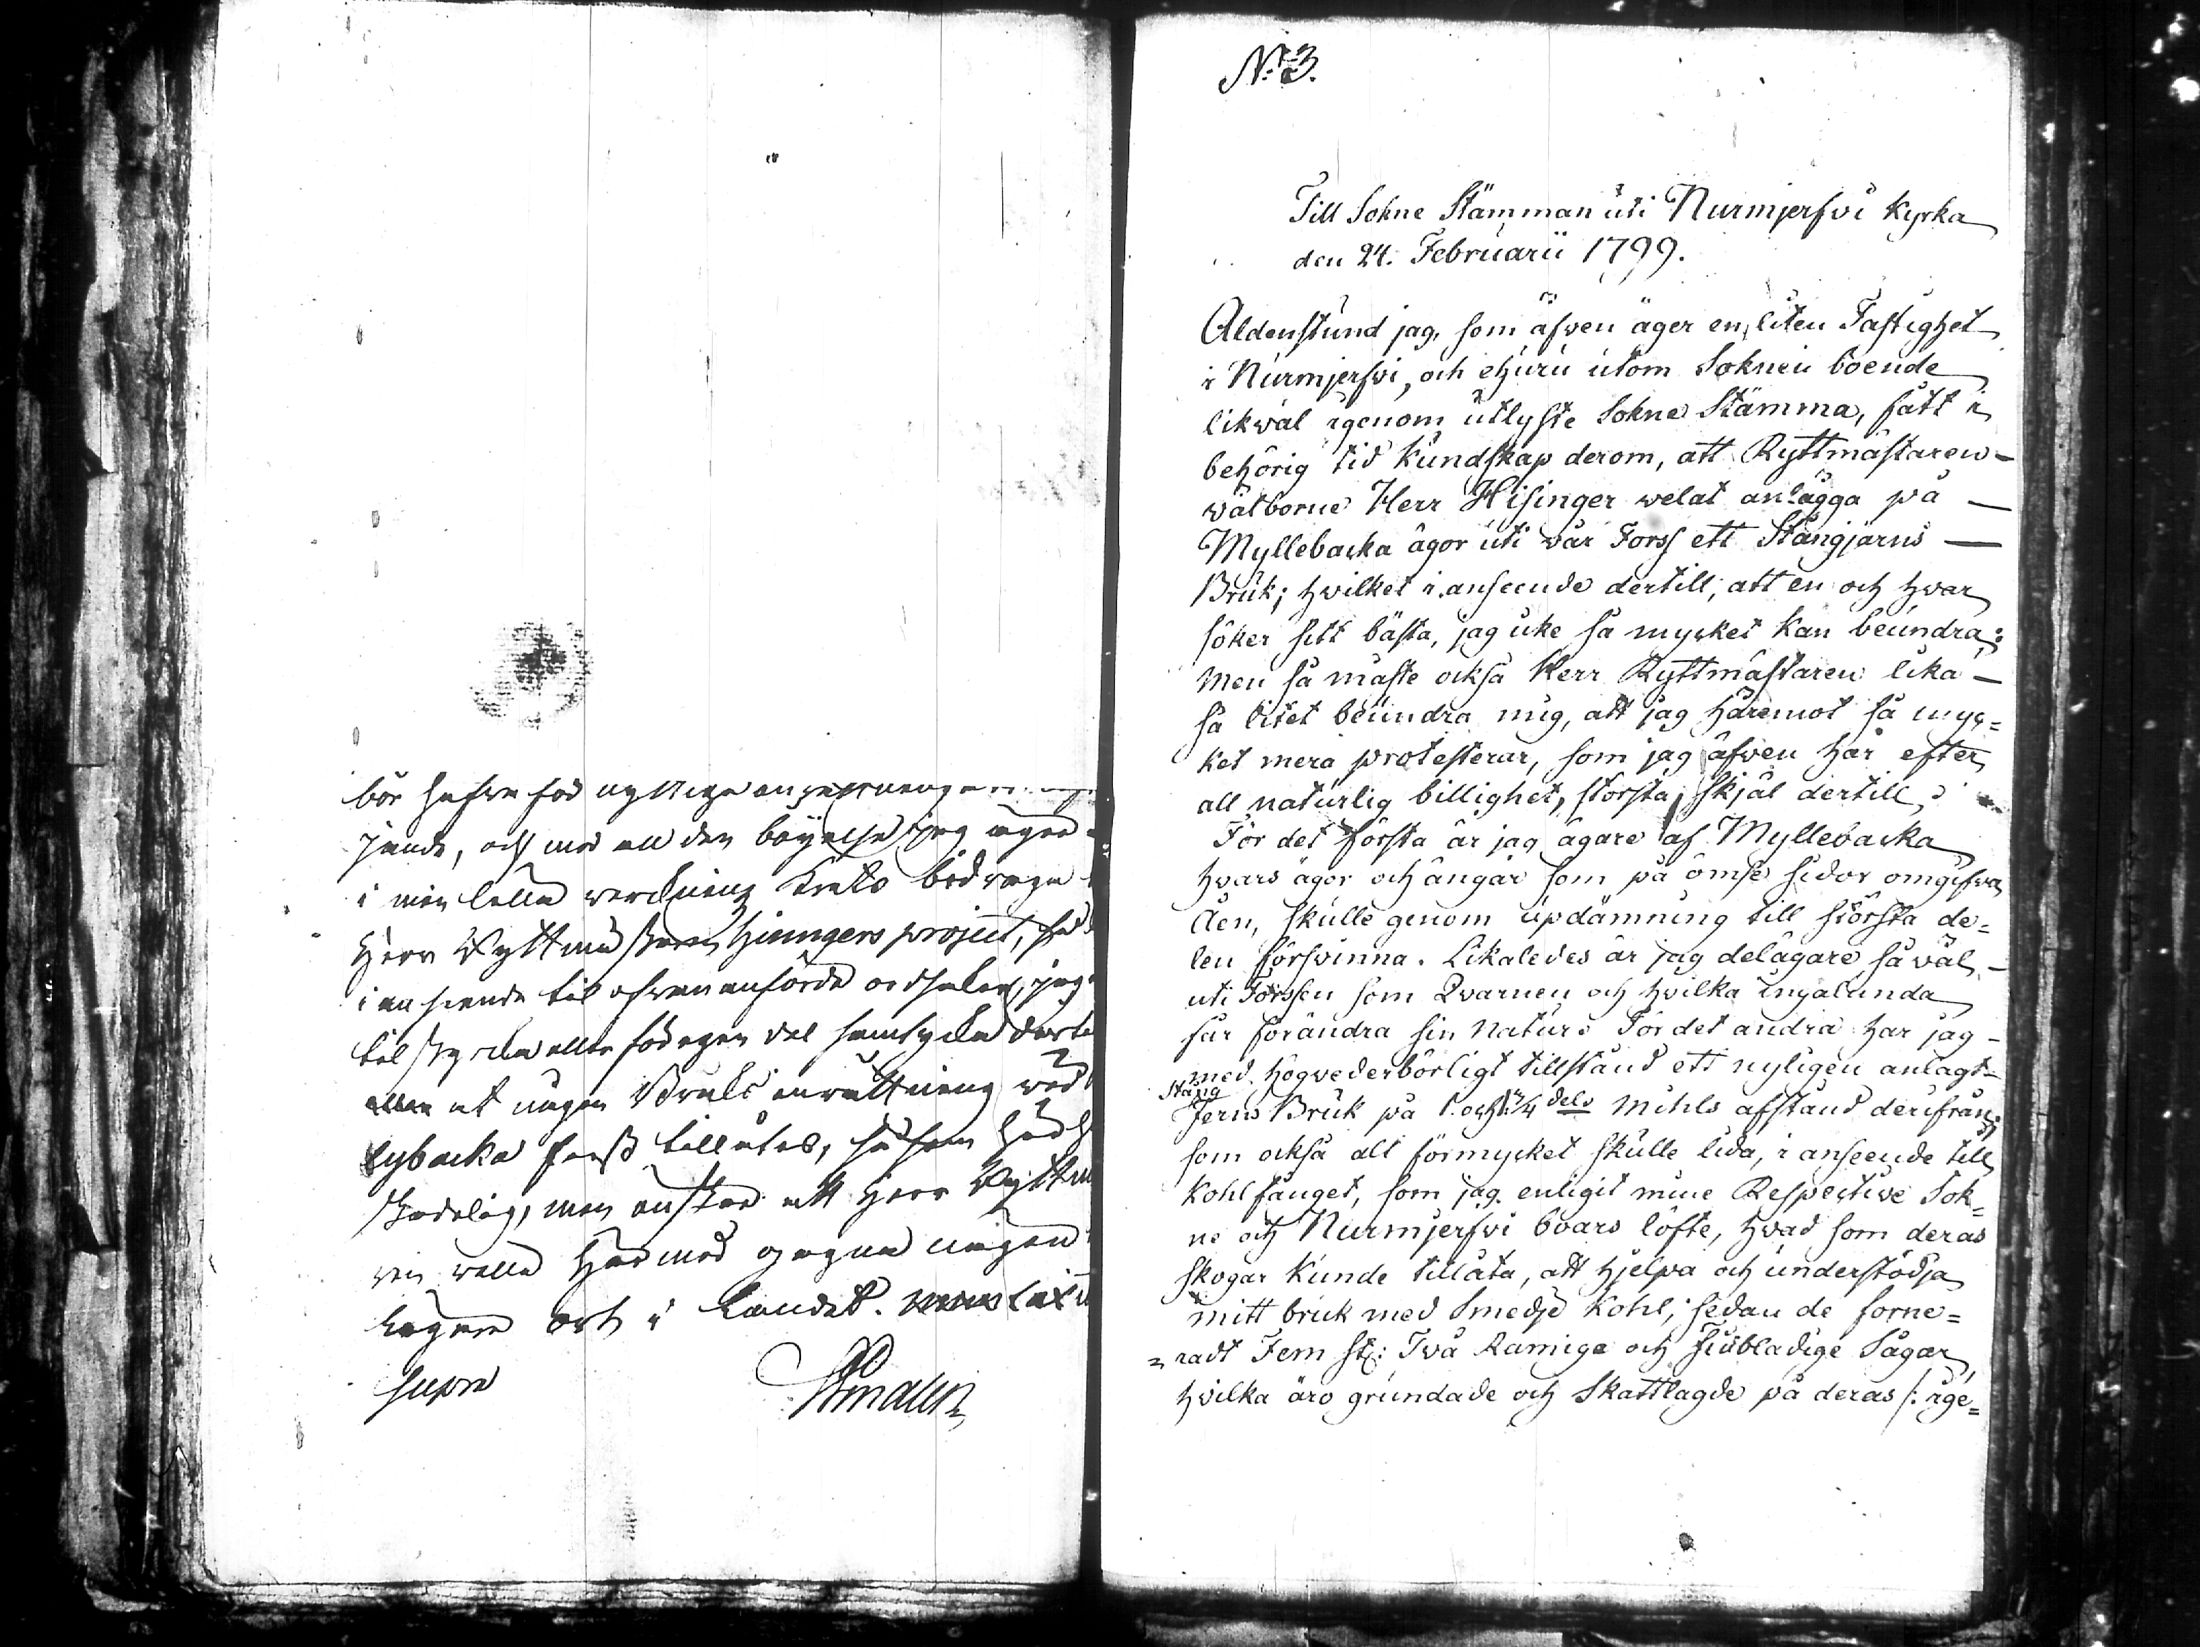 bör hafva för nyttiga
jande, och med all den böyelse jag äger
i min lilla verckning krets bidraga
Herr Ryttmästaren Hisingers project, så
i anseende til ofvananförde ordsaker, jag
til styrcka eller för egen del samtycka
at någon Bruks inrättning vid
lybacka forss tillåtes, såsom
skadelig, men önskar att Herr Ryttm
ren ville härmed gagna någon
lägnare ort i Landet.
supra
N:o 3.
Till Sokne Stämman uti Nurmjerfvi Kyrka
den 24. Februarii 1799.
Aldenstund jag, som äfven äger en liten Fastighet
i Nurmjerfvi, och ehuru utom Soknen boende
likväl igenom utlyste Sokne Stämma, fått i
behörig tid kundskap derom, att Ryttmästaren
välborne Herr Hisinger velat anlägga på
Myllebacka ägor uti vår Forss ett Stångjärns
Bruk; hvilket i anseende dertill, att en och hvar
söker sitt bästa, jag icke så mycket kan beundra;
men så måste också Herr Ryttmästaren lika
så litet beundra mig, att jag häremot så myc=
ket mera protesterar, som jag äfven har efter
all naturlig billighet, största skjäl dertill,
För det första är jag ägare af Myllebacka
hvars ägor och ängar som på ömse sidor omgifva
Åen, skulle genom updämning till största de=
len försvinna. Likaledes är jag delägare så väl
uti Forssen som Qvarnen och hvilka ingalunda
får förändra sin natur. För det andra har jag
med högvederbörligt tillstånd ett nyligen anlagt
Stång
Jerns Bruk på 1. och 1/4 dels Mihls afstånd derifrån;
som också alt förmycket skulle lida, i anseende till
kohlfånget, som jag enligit mine Respective Sok=
ne och Nurmjerfvi boars löfte, hvad som deras
skogar kunde tillåta, att hjelpa och understödja
mitt bruk med Smedje kohl; sedan de förne=
=radt Fem st: Två Ramige och Finbladige Sågar,
hvilka äro grundade och Skattlagde på deras /: äge=